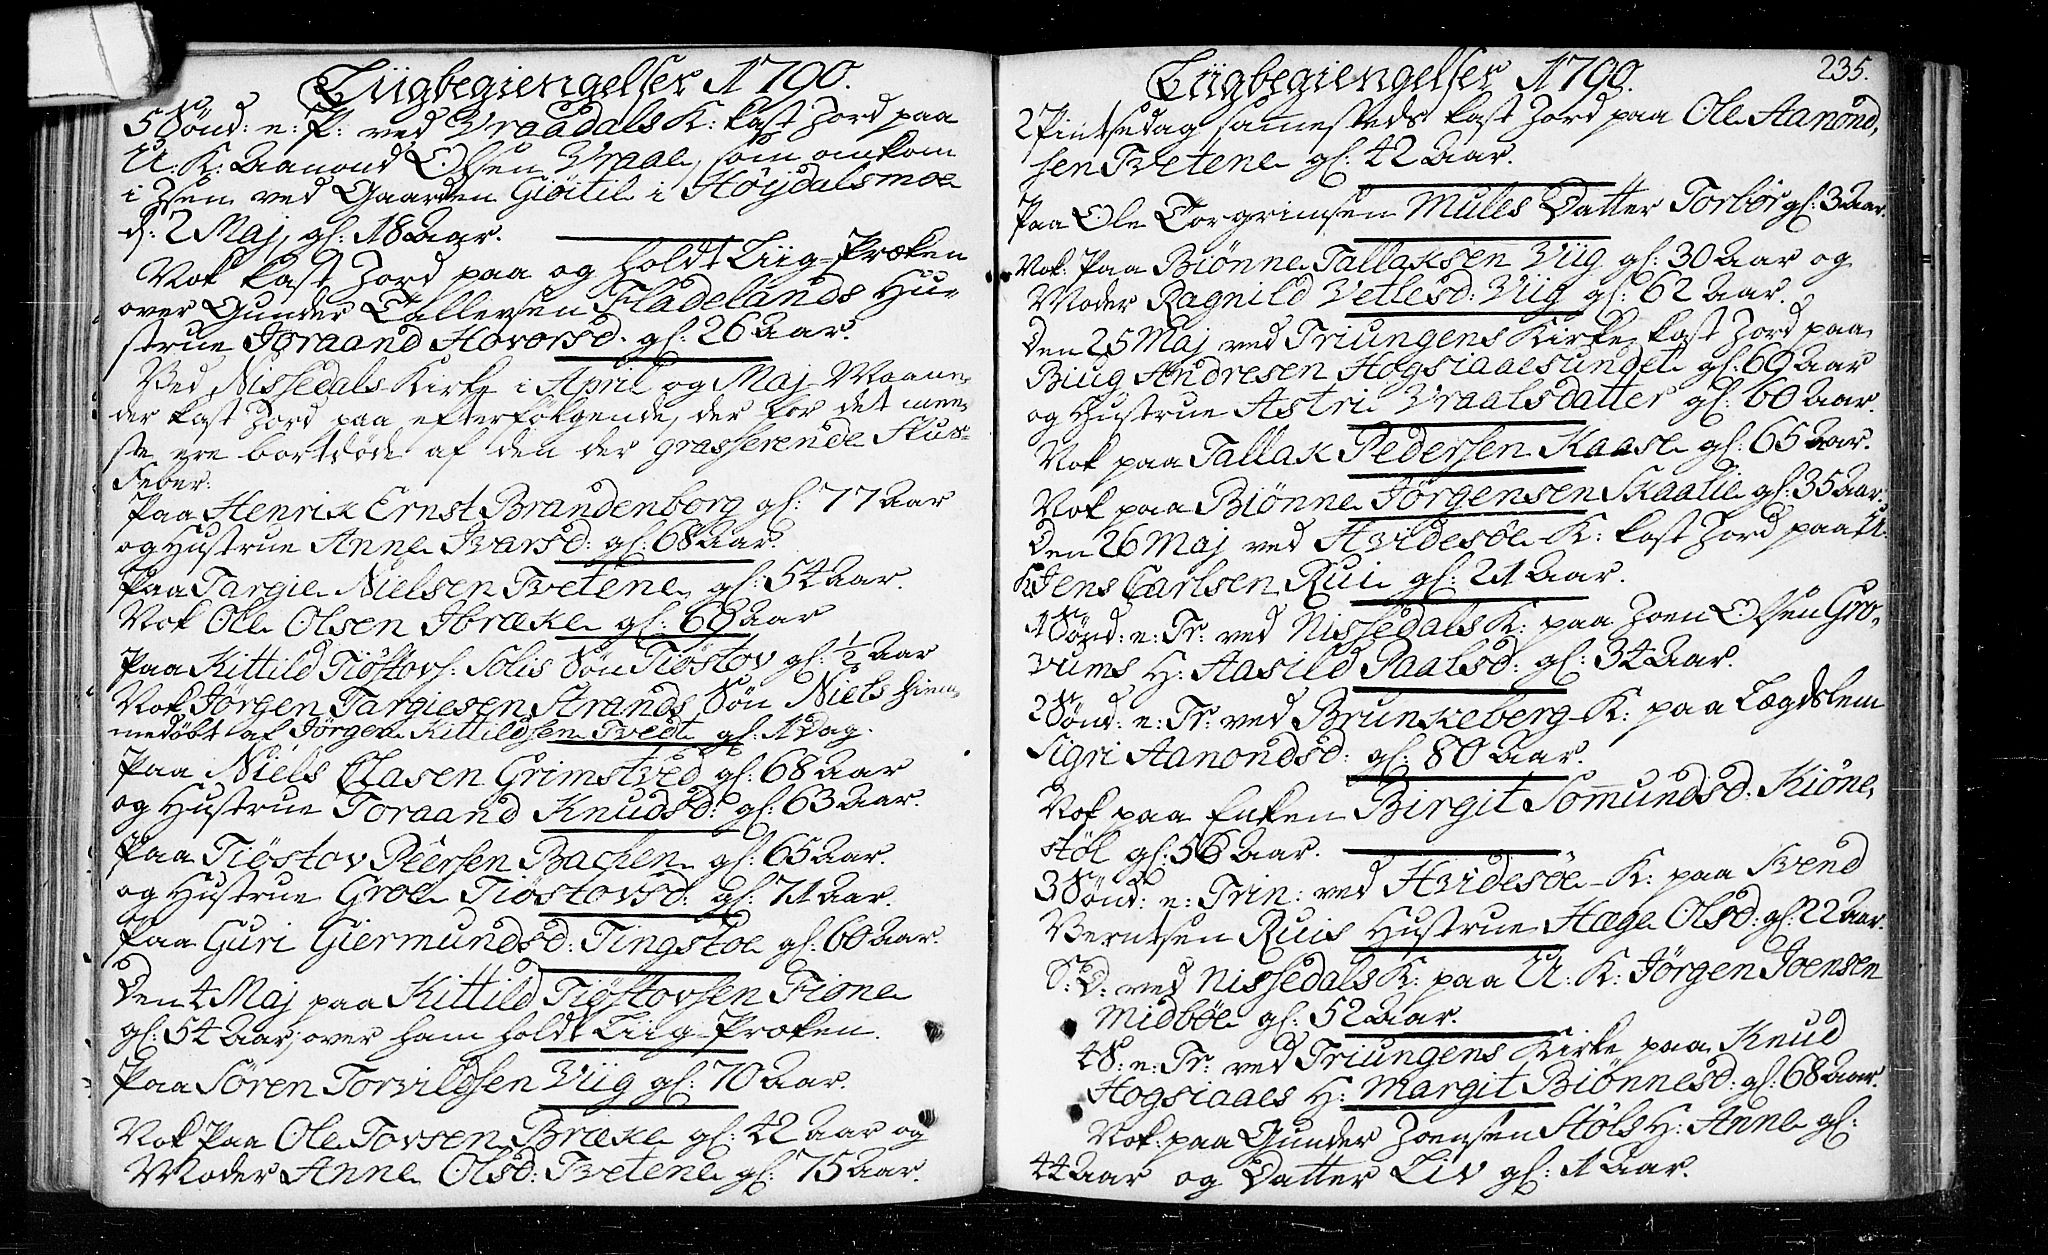 Liigbegiengelser 1790.
5 Sönd: e: P: ved Vraadals K: kast Jord paa
U: K: Aanond Olsen Vraae, som omkom
i Isen ved Gaarden Giötil i Höijdalsmoe
d: 2 Maj, gl: 18 Aar.
Nok kast Jord paa og holdt Liig-Præken
over Gunder Tallevsen Fladelands Hu-
strue Joraand Hovorsd. gl: 26 Aar.
Ved Nissedals Kirke i April og Maj Maane-
der kast Jord paa efterfölgende, der for det mee-
ste ere bortdöde af den der grasserende
Feber:
Paa Henrik Ernst Brandenborg gl: 77 Aar
og Hustrue Anne Ivarsd: gl: 68 Aar.
Paa Targie Nielsen Tvetene gl: 54 Aar.
Nok Ole Olsen Ibræke gl: 69 Aar
Paa Kittild Tiöstovs: Solis Sön Tiöstov gl: ½ Aar
Nok Jörgen Targiesen Strands Sön Niels hiem-
medöbt af Jörgen Kittildsen Tvedt gl: 1 Dag.
Paa Niels Clasen Grimstved gl: 68 Aar
og Hustrue Toraand Knudsd: gl: 63 Aar.
Paa Tiöstov Peersen Bachen gl: 65 Aar.
og Hustrue Groe Tiöstovsd: gl: 71 Aar.
Paa Guri Giermundsd: Tingstöe gl: 60 Aar.
Den 4 Maj paa Kittild Tiöstovsen Fione
gl: 54 Aar, over ham holdt Liig-Præken.
Paa Sören Torvildsen Viig gl: 70 Aar.
Nok Paa Ole Tovsen Bræke gl: 42 Aar og
Moder Anne Olsd: Tvetene gl: 75 Aar.
Liigbegiengelser 1790.
235.
2 Pintsedag sammesteds kast Jord paa Ole Aanond-
sen Tvetene gl: 42 Aar.
Paa Ole Torgrimsen Mules Datter Torbör gl: 3 Aar.
Nok: Paa Biönne Tallaksen Viig gl: 30 Aar og
Moder Ragnild Vetlesd: Viig gl: 62 Aar.
Den 25 Maj ved Triungens Kirke kast Jord paa
Biug Andresen Hogsiaaesundet gl: 69 Aar
og Hustrue Astri Vraalsdatter gl: 60 Aar.
Nok paa Tallak Pedersen Kaase gl: 65 Aar.
Nok paa Biönne Jörgensen Skaalie gl: 35 Aar.
Den 26 Maj ved Hvidesöe K: kast Jord paa U:
K: Jens Carlsen Rui gl: 21 Aar.
1 Sönd: e: Tr: ved Nissedals K: paa Joen Olsen Gro-
vums H: Aasild Paalsd: gl: 34 Aar.
2 Sönd: e: Tr: ved Brunkeberg K: paa Lægdslem
Sigri Aanondsd: gl: 80 Aar.
Nok paa Enken Birgit Sommundsd: Kiöne-
stöl gl: 56 Aar.
3 Sönd: e: Trin: ved Hvidesöe K: paa Svend
Berntsen Ruis Hustrue Hæge Olsd: gl: 22 Aar.
S: D: ved Nissedals K: paa U: K: Jörgen Joensen
Midböe gl: 52 Aar.
4 S: e: Tr: ved Triungens Kirke paa Knud
Hogsiaaes H: Margit Biönnesd: gl: 68 Aar.
Nok: paa Gunder Joensen Stöls H: Anne gl:
44 Aar og Datter Liv gl: 1 Aar.